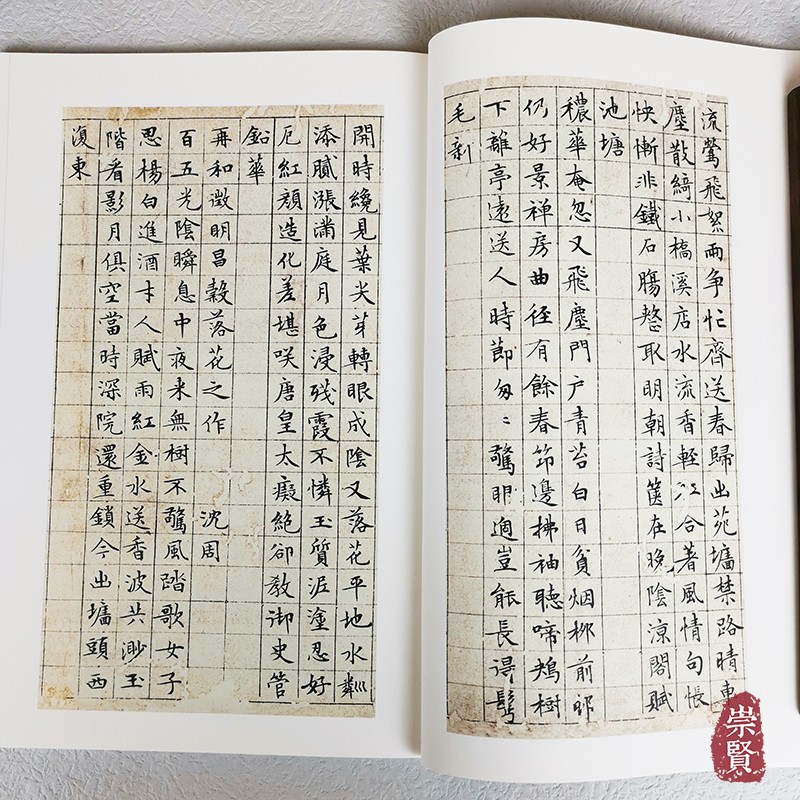 流鶯飛絮兩争忙齊送春歸出苑墻禁路晴車
塵散綺小橋溪店水流香輕江合著風情句悵
怏慚非鐵石腸憗取明朝詩篋在晚陰凉閣賦
池塘
穠華奄忽又飛塵門户青苔白日貧烟柳前邨
仍好景禅房曲徑有餘春笻邊拂袖聽啼鴂樹
下離亭遠送人時節匆〻驚眀適豈能長得鬂
毛新
開時纔見葉尖芽轉眼成陰又落花平地水粼
添膩漲滿庭月色浸殘霞不憐玉質泥塗忍好
厄紅顔造化差堪咲唐皇太癡絶卻教御史管
鉛華
再和徵明昌穀落花之作 沈周
百五光陰瞬息中夜来無樹不驚風踏歌女子
思楊白進酒才人賦雨紅金水送香波共渺玉
階看影月俱空當時深院還重鎖今出墻頭西
復東
崇賢